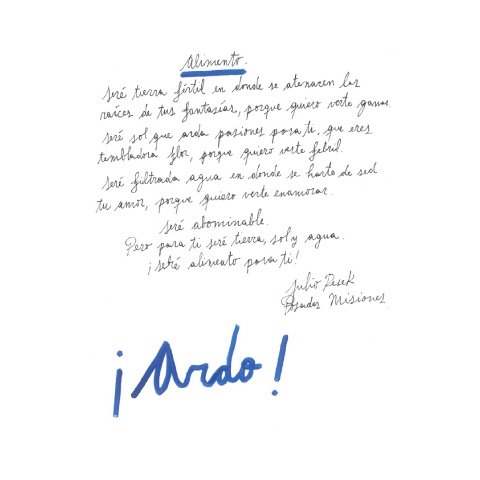 Alimento.
Seré tierra fértil en donde se atenacen las
raíces de tus fantasías, porque quiero verte ganar.
Seré sol que arda pasiones para ti, que eres
tembladora flor, porque quiero verte febril.
Seré filtrada agua en donde se harte de sed
tu amor, porque quiero verte enamorar.
Seré abominable.
Pero para ti seré tierra, sol y agua.
¡Seré alimento para ti!
Julio Resek
Posadas Misiones
¡Ardo!